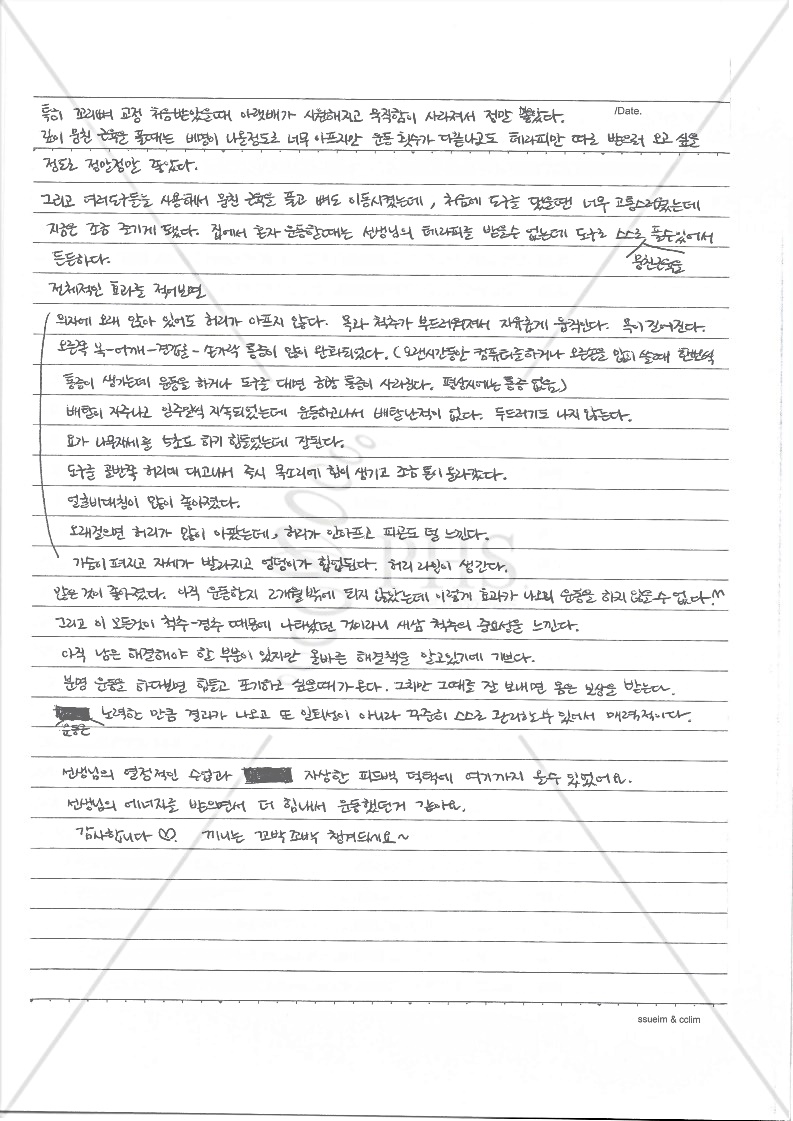 /Date.
특히 꼬리뼈 교정 처음받았을때 아랫배가 시원해지고 묵직함이 사라져서 정말 좋았다.
깊이 뭉친 근육을 풀때는 비명이 나올정도로 너무 아프지만 운동 횟수가 다끝나고도 테라피만 따로 받으러 오고 싶을
정도로 정말정말 좋았다.
그리고 여러도구들을 사용해서 뭉친 근육을 풀고 뼈도 이동시켰는데, 처음에 도구를 댔을땐 너무 고통스러웠는데
지금은 조금 즐기게 됐다. 집에서 혼자 운동할때는 선생님의 테라피를 받을수 없는데 도구로 스스로 풀수있어서
뭉친근육을
든든하다.
전체적인 효과를 적어보면
의자에 오래 앉아 있어도 허리가 아프지 않다. 목과 척추가 부드러워져서 자유롭게 움직인다. 목이 길어진다.
오른쪽 목-어깨-견갑골-손가락 통증이 많이 완화되었다. (오랜시간동안 컴퓨터를하거나 오른손을 많이 쓸때 한번씩
통증이 생기는데 운동을 하거나 도구를 대면 금방 통증이 사라진다. 평상시에는 통증 없음)
배탈이 자주나고 일주일씩 지속되었는데 운동하고나서 배탈난적이 없다. 두드러기도 나지 않는다.
요가 나무자세를 5초도 하기 힘들었는데 잘된다.
도구를 골반쪽 허리에 대고나서 즉시 목소리에 힘이 생기고 조금 톤이 올라갔다.
얼굴비대칭이 많이 좋아졌다.
오래걸으면 허리가 많이 아팠는데, 허리가 안아프고 피곤도 덜 느낀다.
가슴이 펴지고 자세가 발라지고 엉덩이가 힙업된다. 허리 라인이 생긴다.
많은 것이 좋아졌다. 아직 운동한지 2개월밖에 되지 않았는데 이렇게 효과가 나오니 운동을 하지 않을수 없다!^^
그리고 이 모든것이 척추-경추 때문에 나타났던 것이라니 새삼 척추의 중요성을 느낀다.
아직 남은 해결해야 할 부분이 있지만 올바른 해결책을 알고있기에 기쁘다.
분명 운동을 하다보면 힘들고 포기하고 싶을때가온다. 그치만 그때를 잘 보내면 몸은 보상을 받는다.
노력한 만큼 결과가 나오고 또 일회성이 아니라 꾸준히 스스로 관리할수 있어서 매력적이다.
운동은
선생님의 열정적인 수업과 자상한 피드백 덕택에 여기까지 올수 있었어요.
선생님의 에너지를 받으면서 더 힘내서 운동했던거 같아요.
감사합니다 ♡. 끼니는 꼬박꼬박 챙겨드세요~
PHS
ssueim & cclim